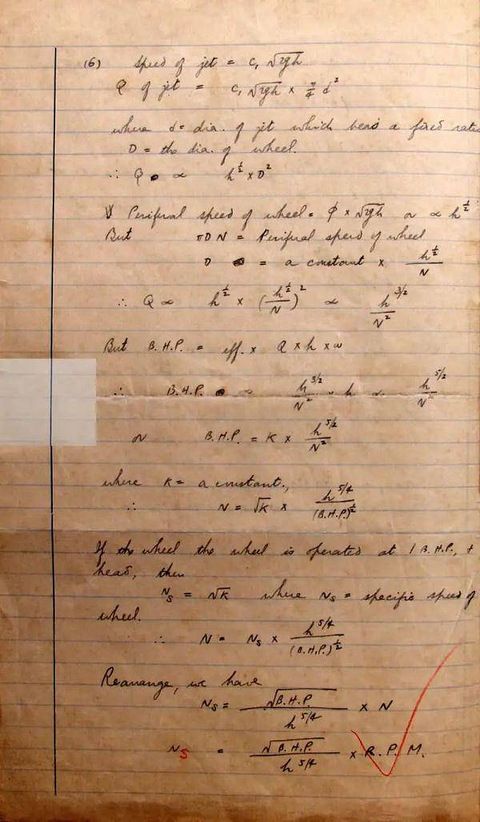 (6) Speed of jet = c, √2gh
Q of jet = c, √2gh × π/4 d²
where d = dia. of jet which bears a fixed ratio
D = the dia. of wheel.
∴ Q ∝ h^½ × D²
V Perifual speed of wheel = φ × √2gh or ∝ h^½
But πDN = Perifual speed of wheel
D = a constant × h^½/N
∴ Q ∝ h^½ × (h^½/N)² ∝ h^3/2/N²
But B.H.P. = eff. × Q × h × w
∴ B.H.P. ∝ h^3/2/N² × h ∝ h^5/2/N²
or B.H.P. = K × h^5/2/N²
where K = a constant.,
∴ N = √K × h^5/4/(B.H.P.)^½
If the wheel the wheel is operated at 1 B.H.P., +
head, then
Ns = √K where Ns = specific speed of
wheel.
∴ N = Ns × h^5/4/(B.H.P.)^½
Rearange, we have
Ns = √B.H.P./h^5/4 × N
Ns = √B.H.P./h^5/4 × R.P.M.